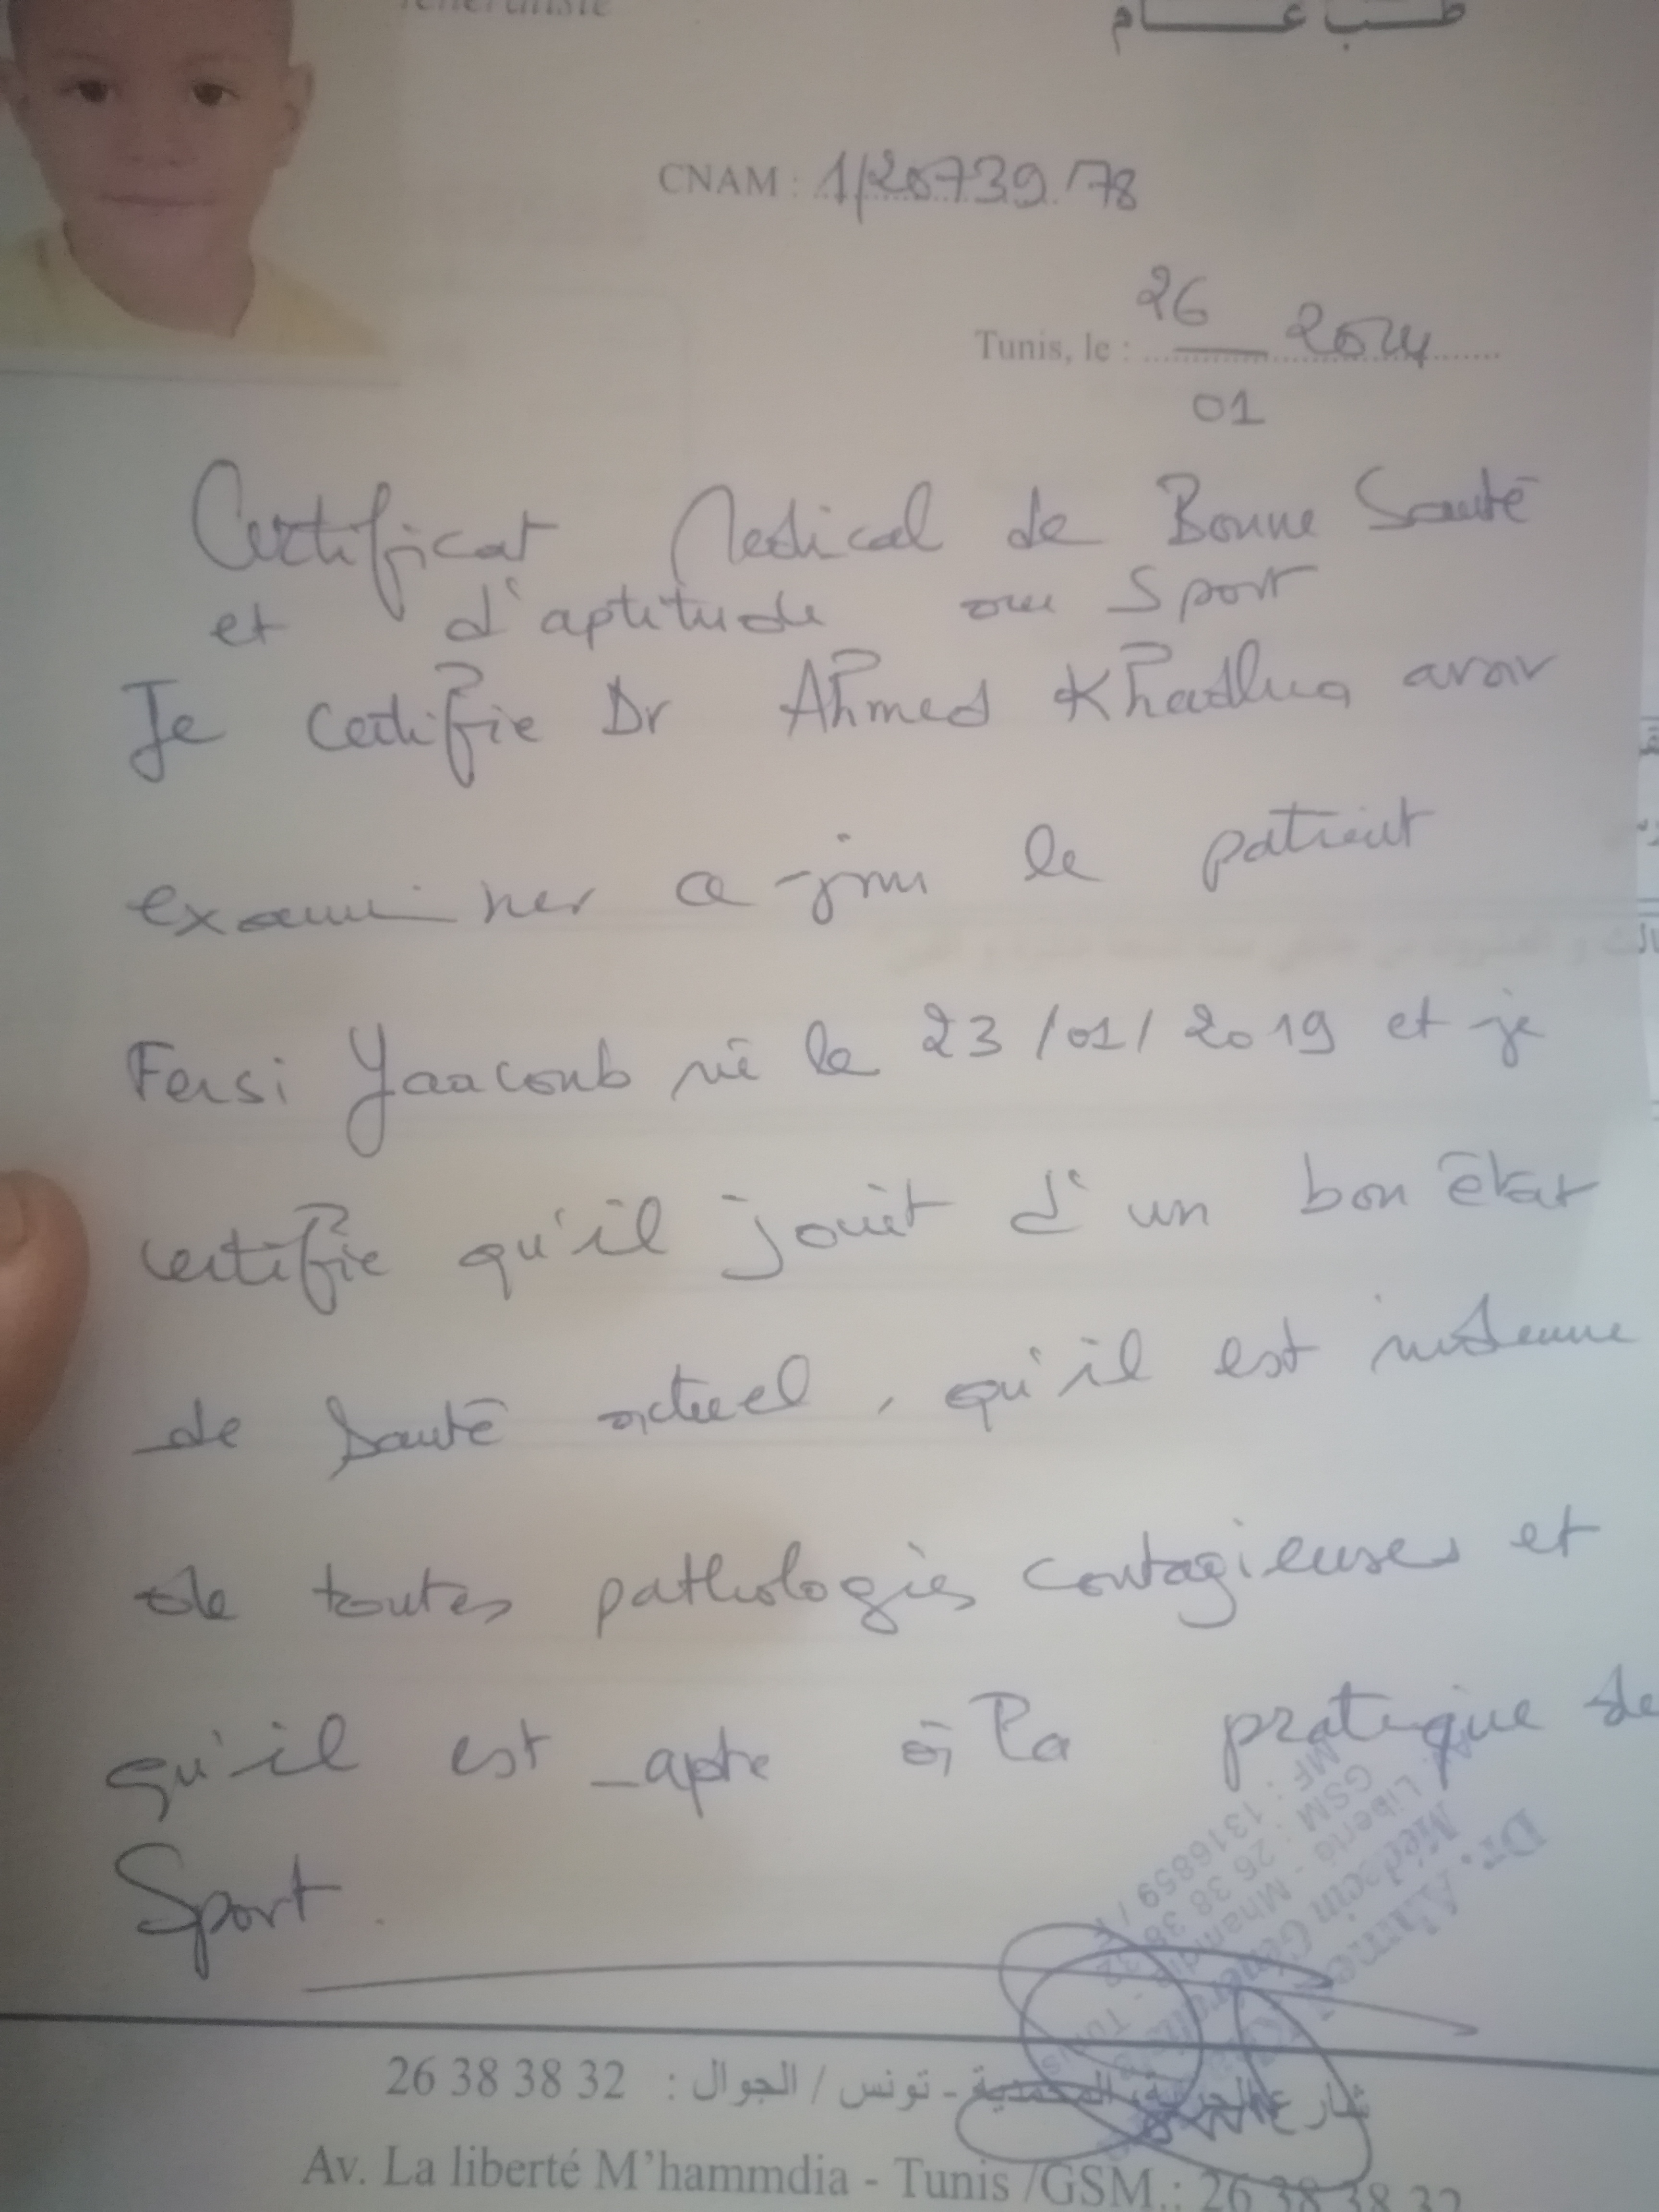 طب عام
CNAM : 1/20739.78
Tunis, le : 26/01 2024
Certificat Medical de Bonne Santé
et d'aptitude au Sport
Je certifie Dr Ahmed Khadhra avoir
examiner ce jour le patient
Fersi Yaacoub né le 23/01/2019 et je
certifie qu'il jouit d'un bon état
de Santé actuel, qu'il est indemne
de toutes pathologies contagieuses et
qu'il est apte à la pratique de
Sport.
Dr. Ahmed
Médecin Généraliste
Liberté - Mhamdia - Tunis
GSM : 26 38 38 32
MF : 1316859 /
شارع الحرية المحمدية - تونس / الجوال : 26 38 38 32
Av. La liberté M'hammdia - Tunis /GSM.: 26 38 38 32